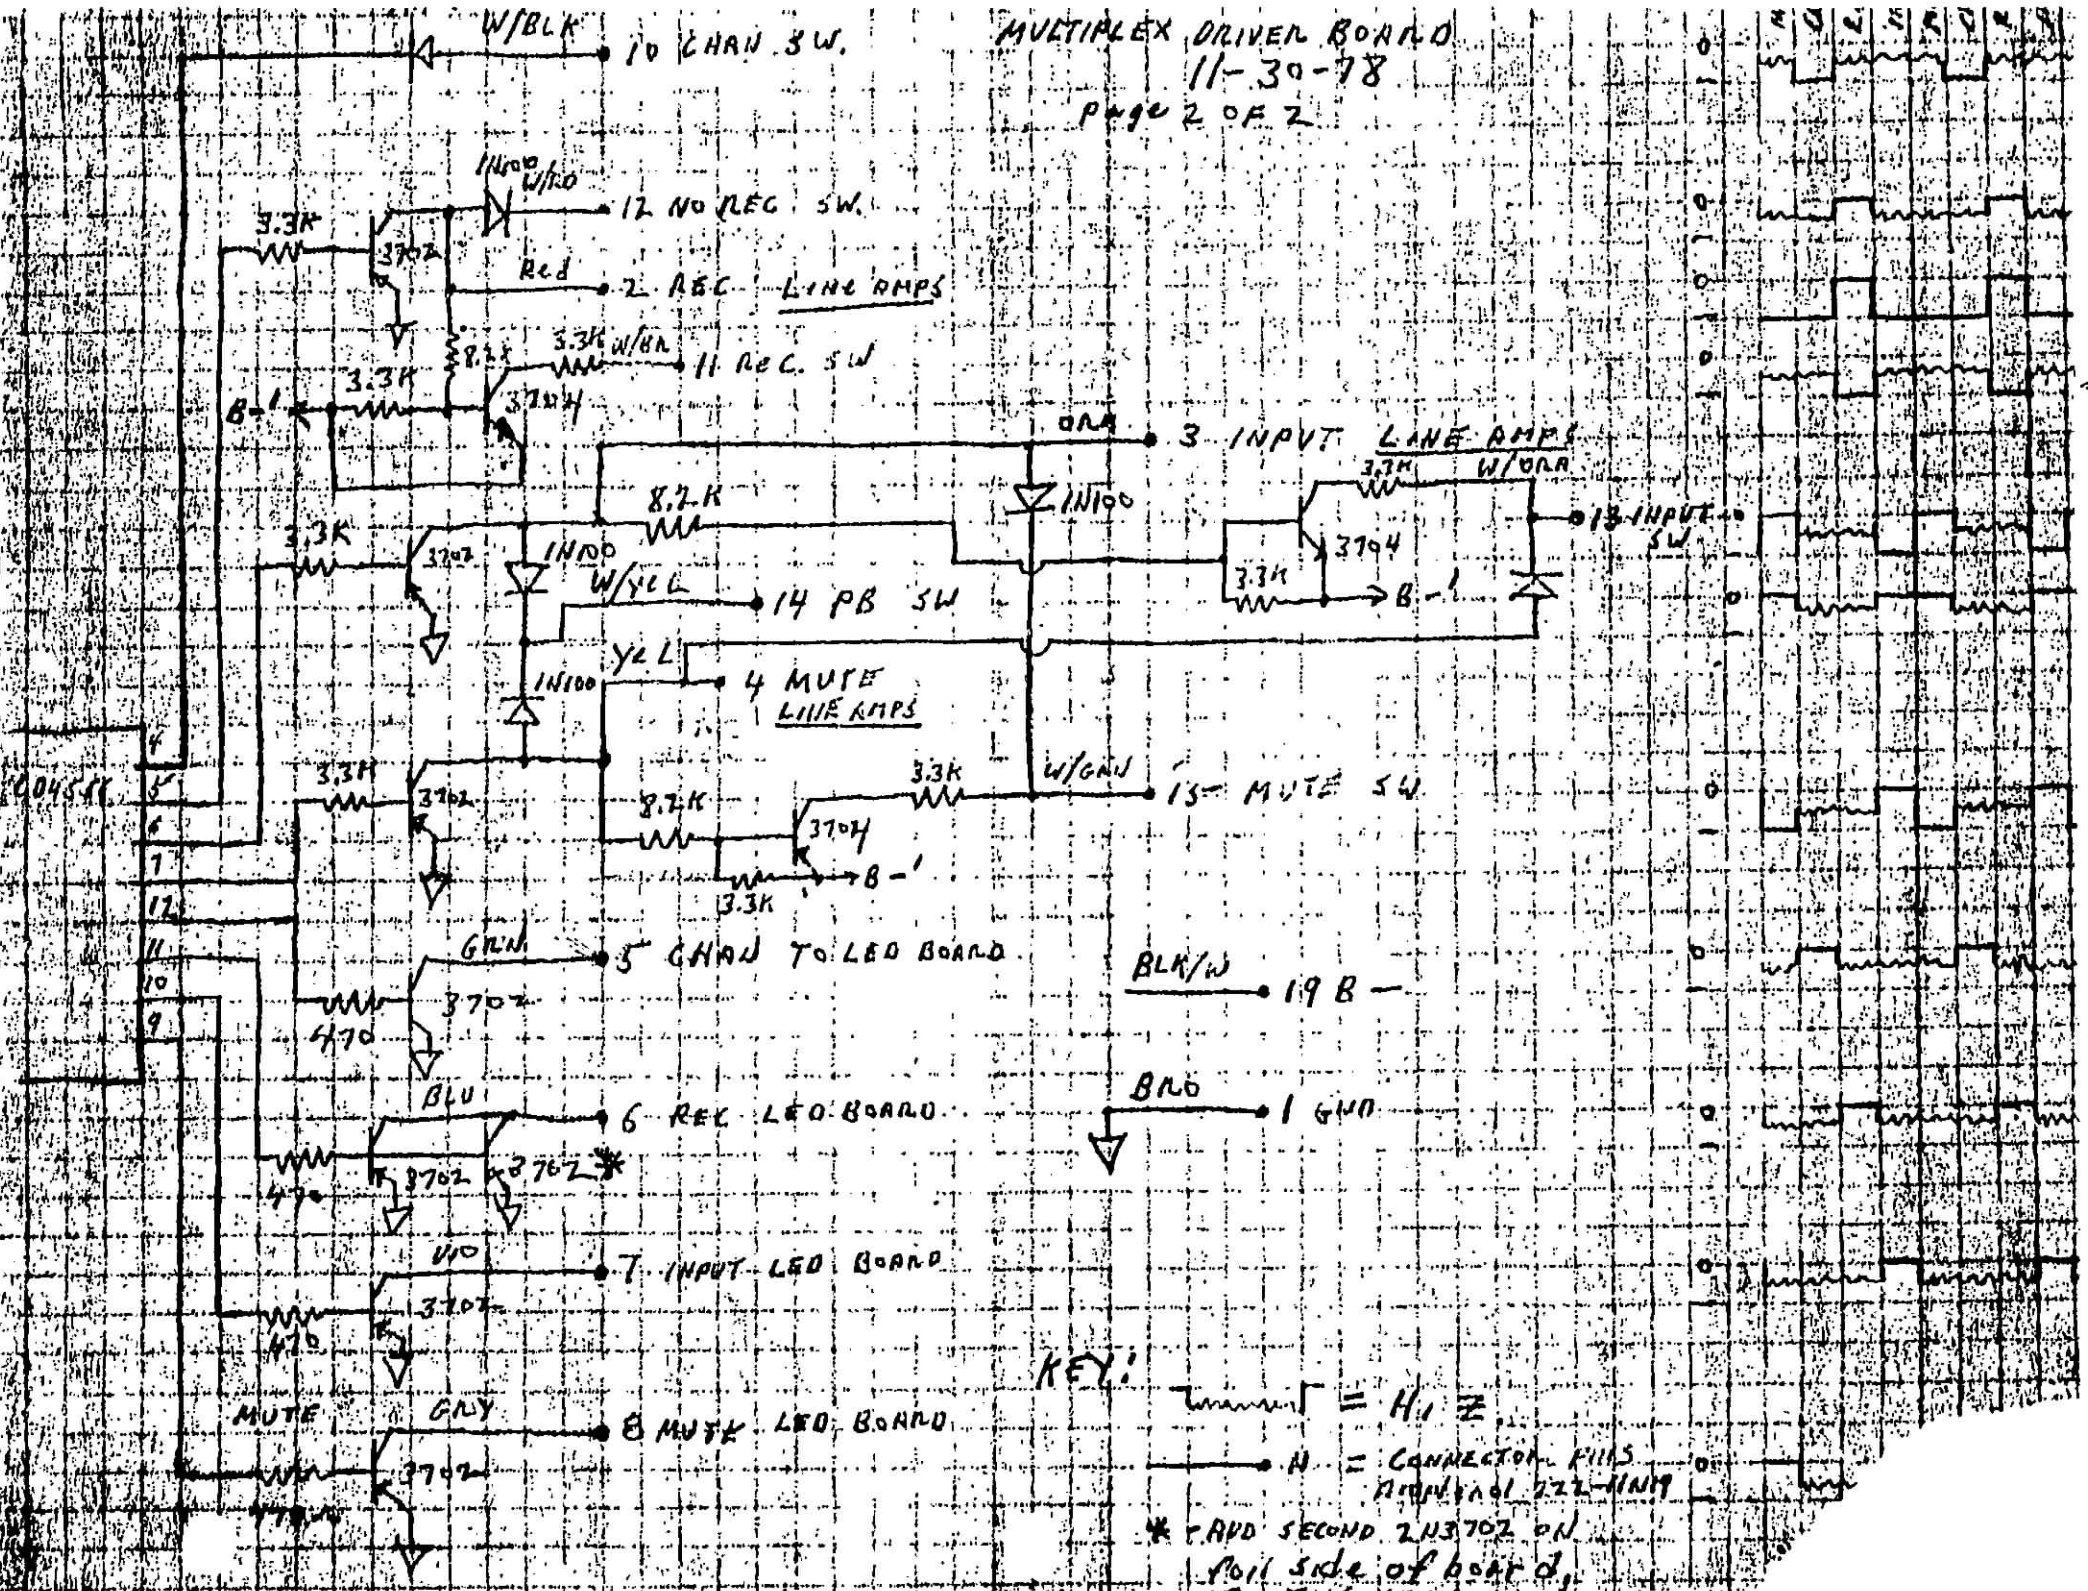 MULTIPLEX DRIVER BOARD
11-30-78
page 2 OF 2
W/BLK
10 CHAN SW.
1N100
12 NO REC SW.
3.3K
3702
Red
2 REC LINE AMPS
3.3K
11 REC. SW
8.2K
3.3K
B-'
3704
ORA
3 INPUT LINE AMPS
3.3K
W/ORA
1N100
13 INPUT
SW
8.2K
3.3K
3702
1N100
W/YEL
14 PB SW
3704
3.3K
B-'
YEL
1N100
4 MUTE
LINE AMPS
4
5
6
7
12
11
10
9
3.3K
3702
8.2K
3.3K
W/GRN
15 MUTE SW
3704
B-'
3.3K
GRN
5 CHAN TO LED BOARD
3702
470
BLK/W
19 B-
BLU
6 REC LED BOARD
3702
3702 *
470
BRO
1 GND
VIO
7 INPUT LED BOARD
3702
470
MUTE
GRY
8 MUTE LED BOARD
3702
KEY:
= Hi Z
N = CONNECTOR PINS
* - ADD SECOND 2N3702 ON
foil side of board,